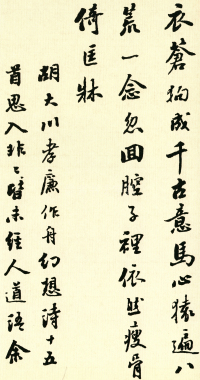 衣蒼狗成千古意馬心猿遍八
荒一念忽回腔子裡依然瘦骨
倚匡牀
胡大川孝廉作舟幻想詩十五
首思入非非皆未經人道語余